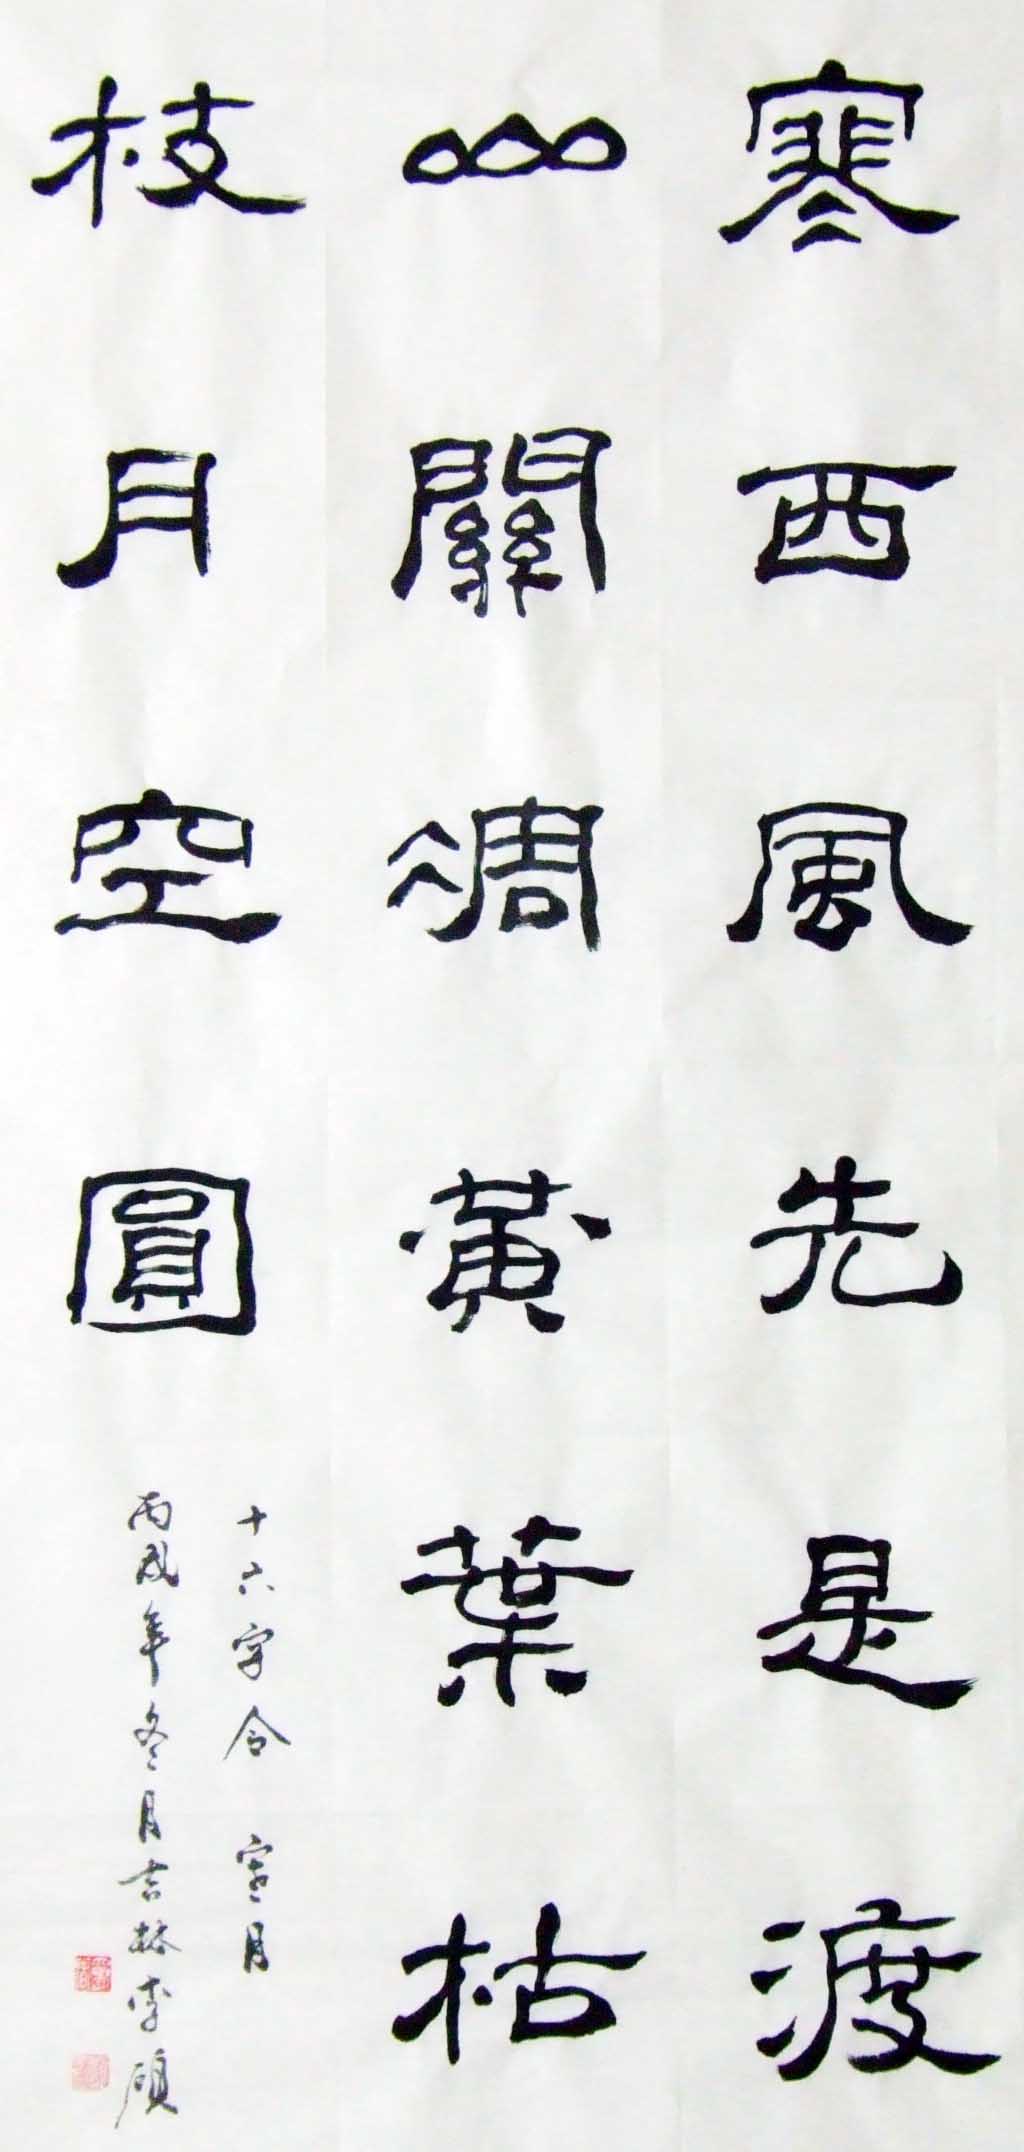 寒西風先是渡
山關凋黃葉枯
枝月空圓
十六字令 寒月
丙戌年冬月吉林李碩